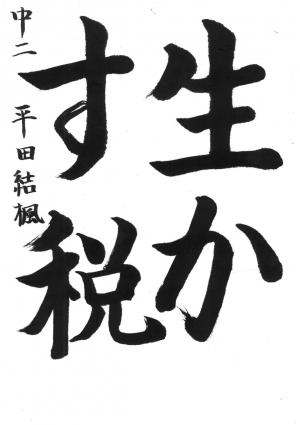 生か
す税
中二 平田結楓